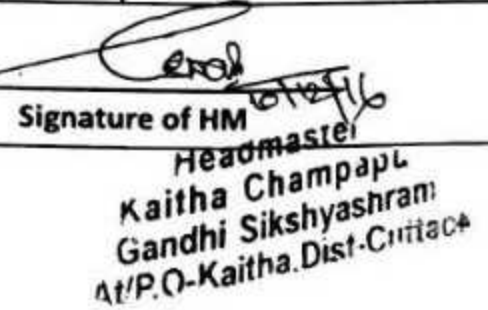 10/12/16
Signature of HM
Headmaster
Kaitha Champapu
Gandhi Sikshyashram
At/P.O-Kaitha.Dist-Cuttack